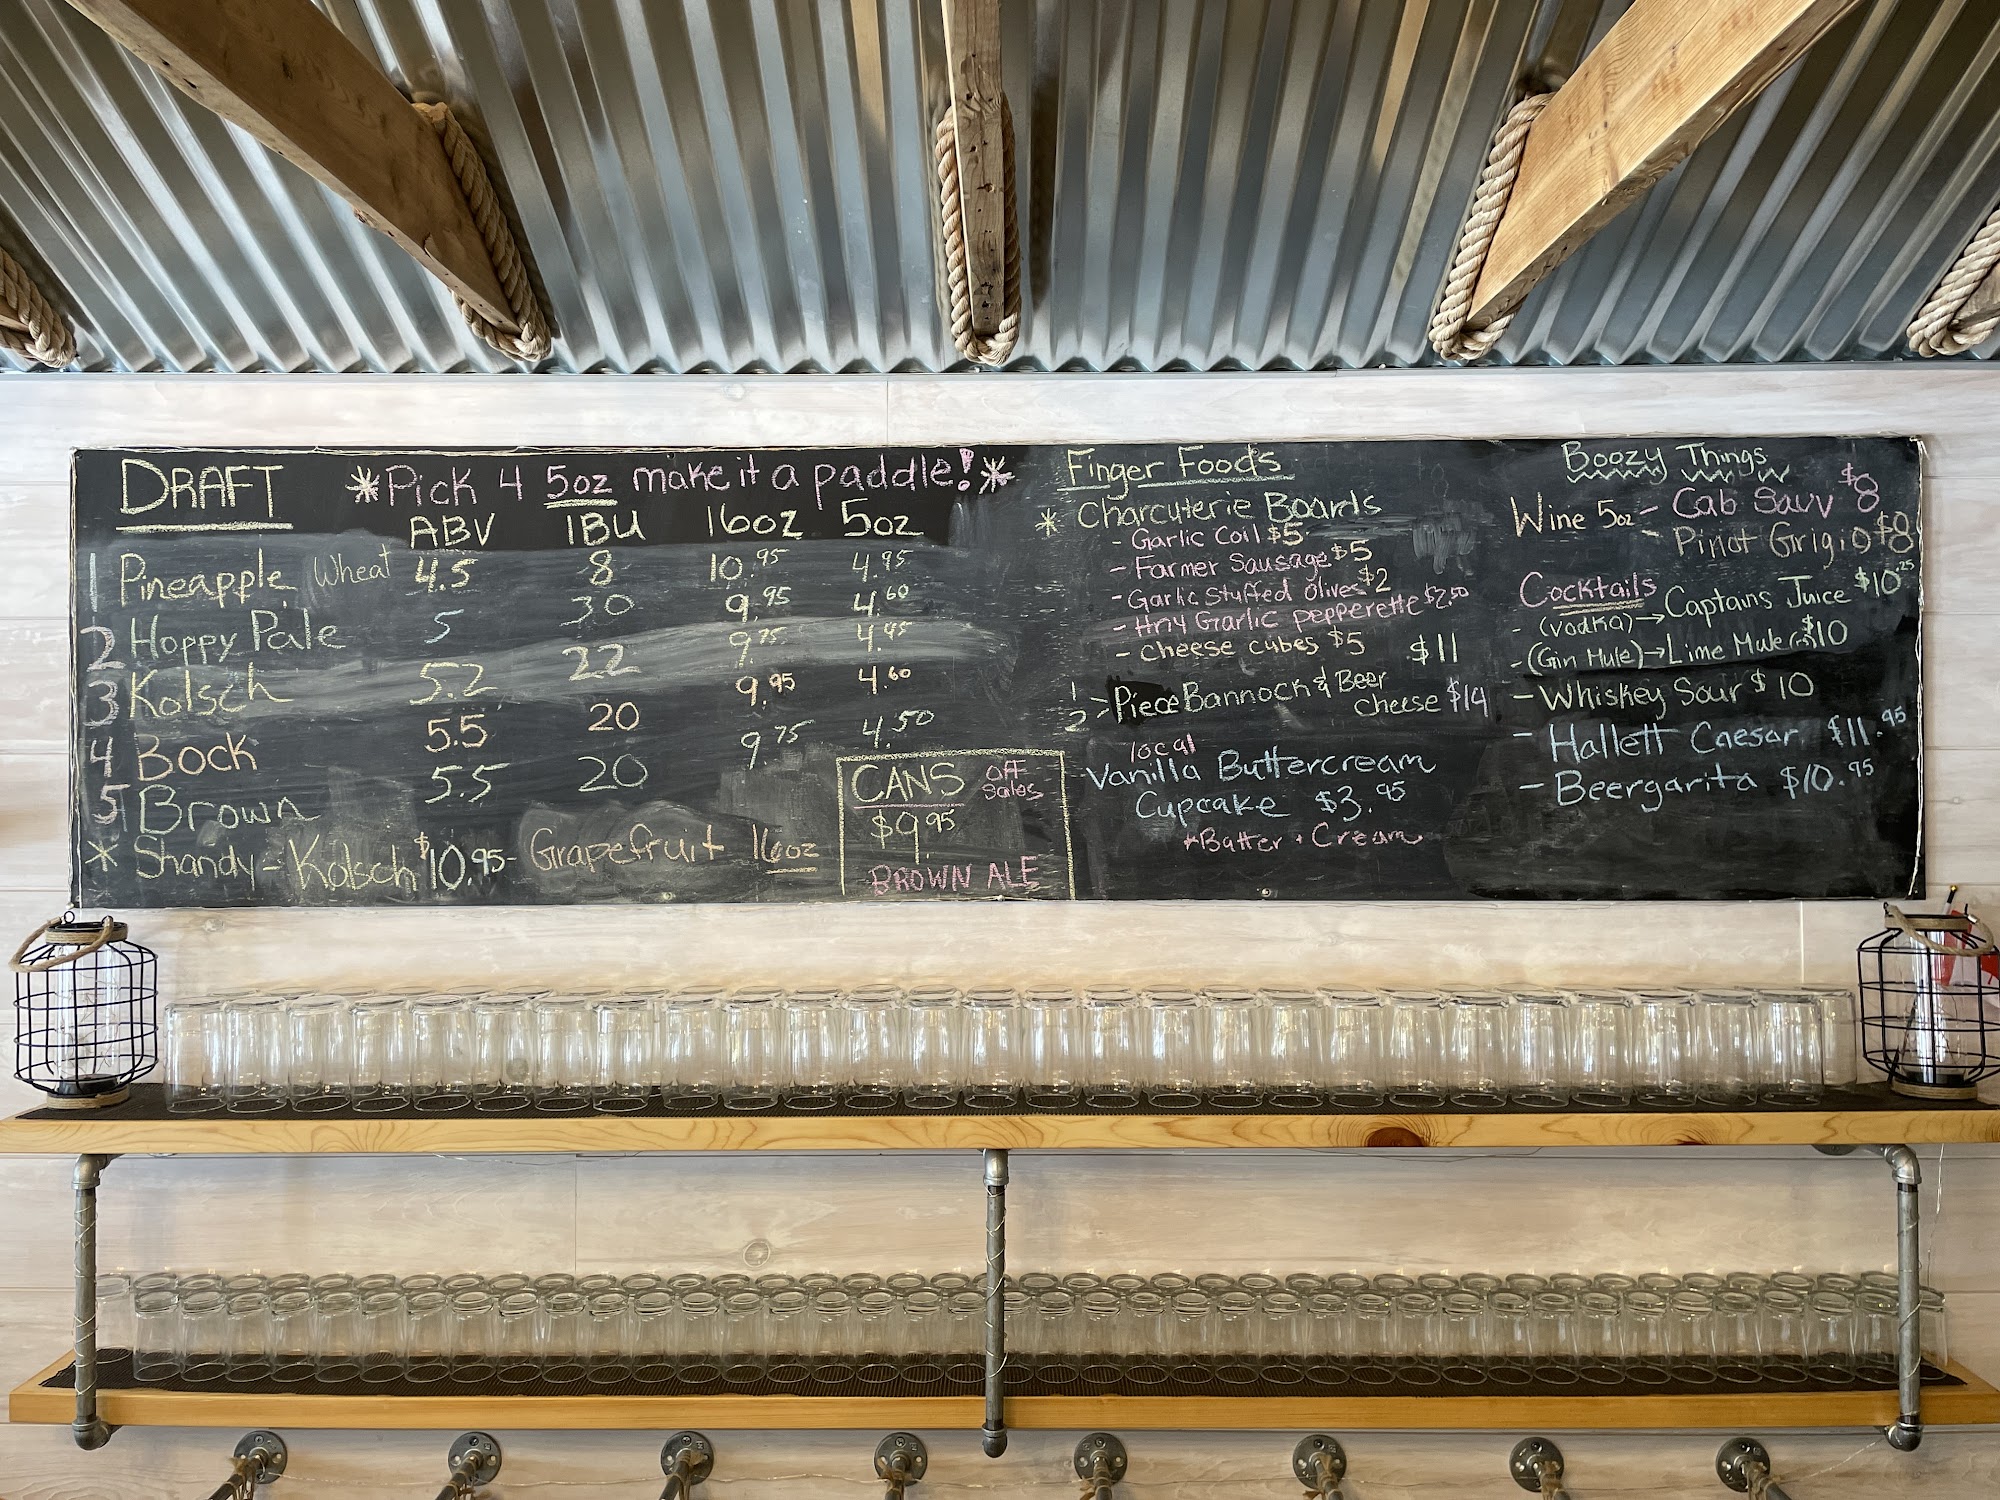 DRAFT *Pick 4 5oz make it a paddle!*
ABV IBU 16oz 5oz
1 Pineapple Wheat 4.5 8 10.95 4.95
2 Hoppy Pale 5 30 9.95 4.60
3 Kolsch 5.2 22 9.75 4.45
4 Bock 5.5 20 9.95 4.60
5 Brown 5.5 20 9.75 4.50
* Shandy - Kolsch $10.95 - Grapefruit 16oz
CANS off sales
$9.95
BROWN ALE
Finger Foods
* Charcuterie Boards
- Garlic Coil $5
- Farmer Sausage $5
- Garlic Stuffed olives $2
- Hny Garlic pepperette $2.50
- cheese cubes $5
1 $11
2 > Piece Bannock & Beer cheese $14
local
Vanilla Buttercream
Cupcake $3.95
*Batter + Cream
Boozy Things
Wine 5oz - Cab Sauv $8
- Pinot Grigio $8
Cocktails
- (vodka) → Captains Juice $10.25
- (Gin Mule) → Lime Mule $10
- Whiskey Sour $10
- Hallett Caesar $11.95
- Beergarita $10.95